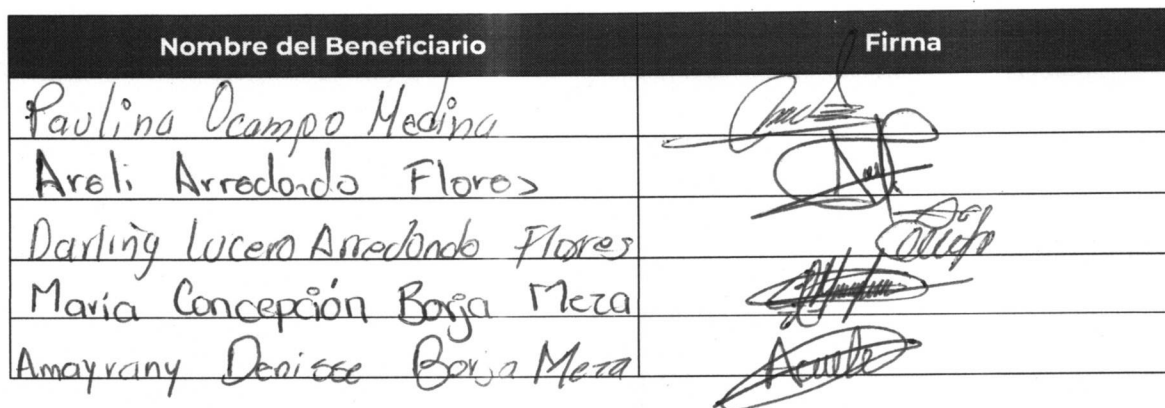 Nombre del Beneficiario Firma
Paulina Ocampo Medina
Areli Arredondo Flores
Darling Lucero Arredondo Flores
María Concepción Borja Meza
Amayrany Denisse Borja Meza